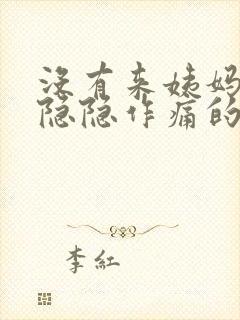 没有来姨妈
隐隐作痛的
李红